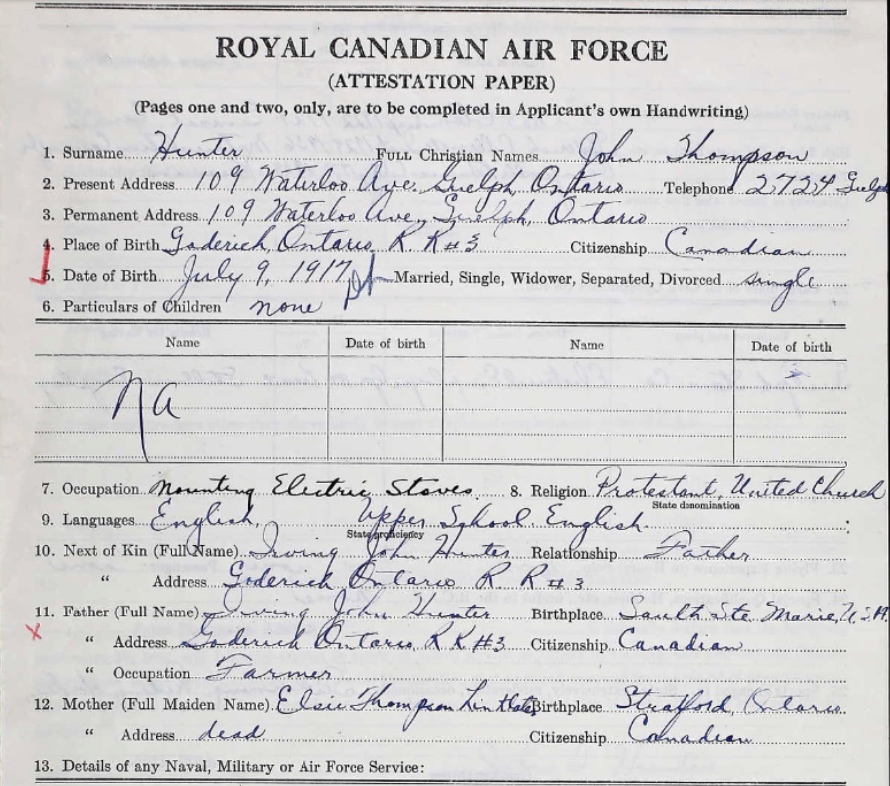 ROYAL CANADIAN AIR FORCE
(ATTESTATION PAPER)
(Pages one and two, only, are to be completed in Applicant's own Handwriting)
1. Surname Hunter FULL Christian Names John Thompson
2. Present Address 109 Waterloo Ave. Guelph, Ontario Telephone 2724 Guelph
3. Permanent Address 109 Waterloo Ave, Guelph, Ontario
4. Place of Birth Goderich, Ontario R. R #3 Citizenship Canadian
5. Date of Birth July 9, 1917 Married, Single, Widower, Separated, Divorced single
6. Particulars of Children none
Name Date of birth Name Date of birth
NA
7. Occupation Mounting Electric Stoves. 8. Religion Protestant, United Church
State denomination
9. Languages English, Upper School English.
State proficiency
10. Next of Kin (Full Name) Irving John Hunter Relationship Father
" Address Goderich Ontario R R #3
11. Father (Full Name) Irving John Hunter Birthplace Saulth Ste. Marie, U.S.A.
" Address Goderich Ontario, R R #3 Citizenship Canadian
" Occupation Farmer
12. Mother (Full Maiden Name) Elsie Thompson Birthplace Stratford, Ontario
" Address dead Citizenship Canadian
13. Details of any Naval, Military or Air Force Service: